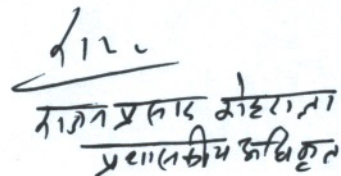 राजन प्रसाद कोइराला
प्रशासकीय अधिकृत